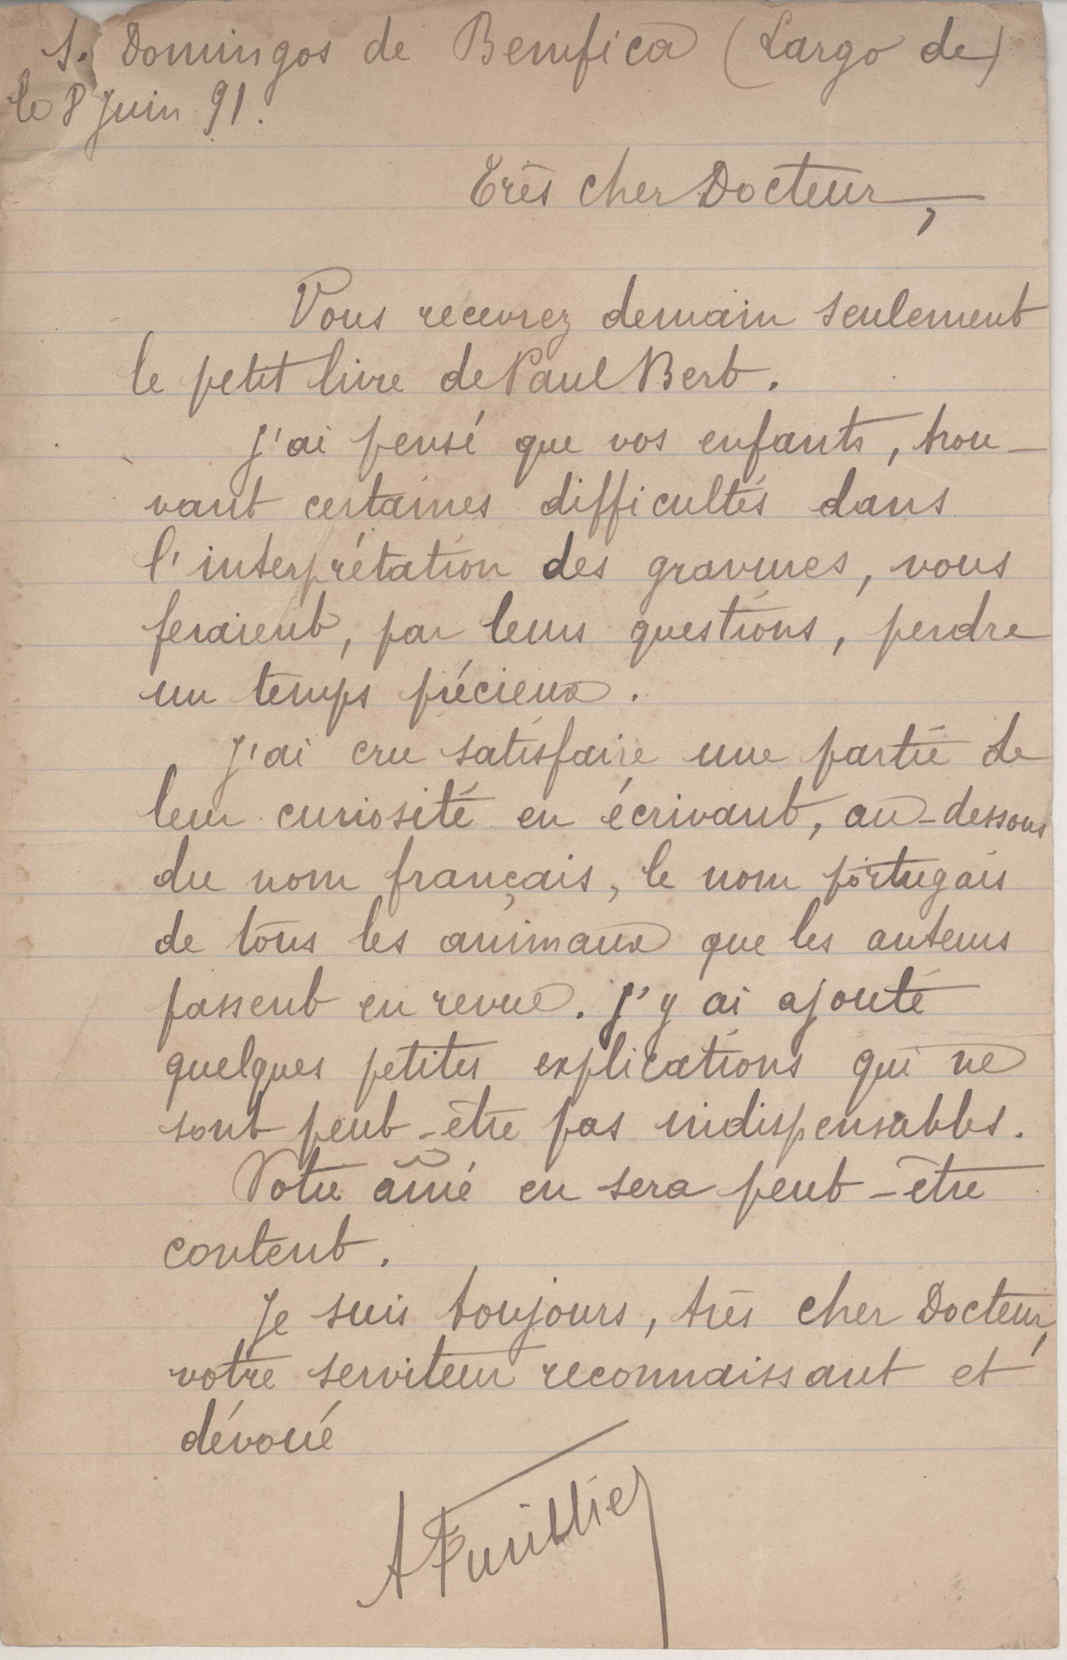 S. Domingos de Bemfica (Largo de)
le 8 Juin 91.
Très cher Docteur,
Vous recevrez demain seulement
le petit livre de Paul Bert.
J'ai pensé que vos enfants, trou-
vant certaines difficultés dans
l'interprétation des gravures, vous
feraient, par leurs questions, perdre
un temps précieux.
J'ai cru satisfaire une partie de
leur curiosité en écrivant, au-dessous
du nom français, le nom portugais
de tous les animaux que les auteurs
passent en revue. J'y ai ajouté
quelques petites explications qui ne
sont peut-être pas indispensables.
Votre aîné en sera peut-être
content.
Je suis toujours, très cher Docteur,
votre serviteur reconnaissant et
dévoué
A